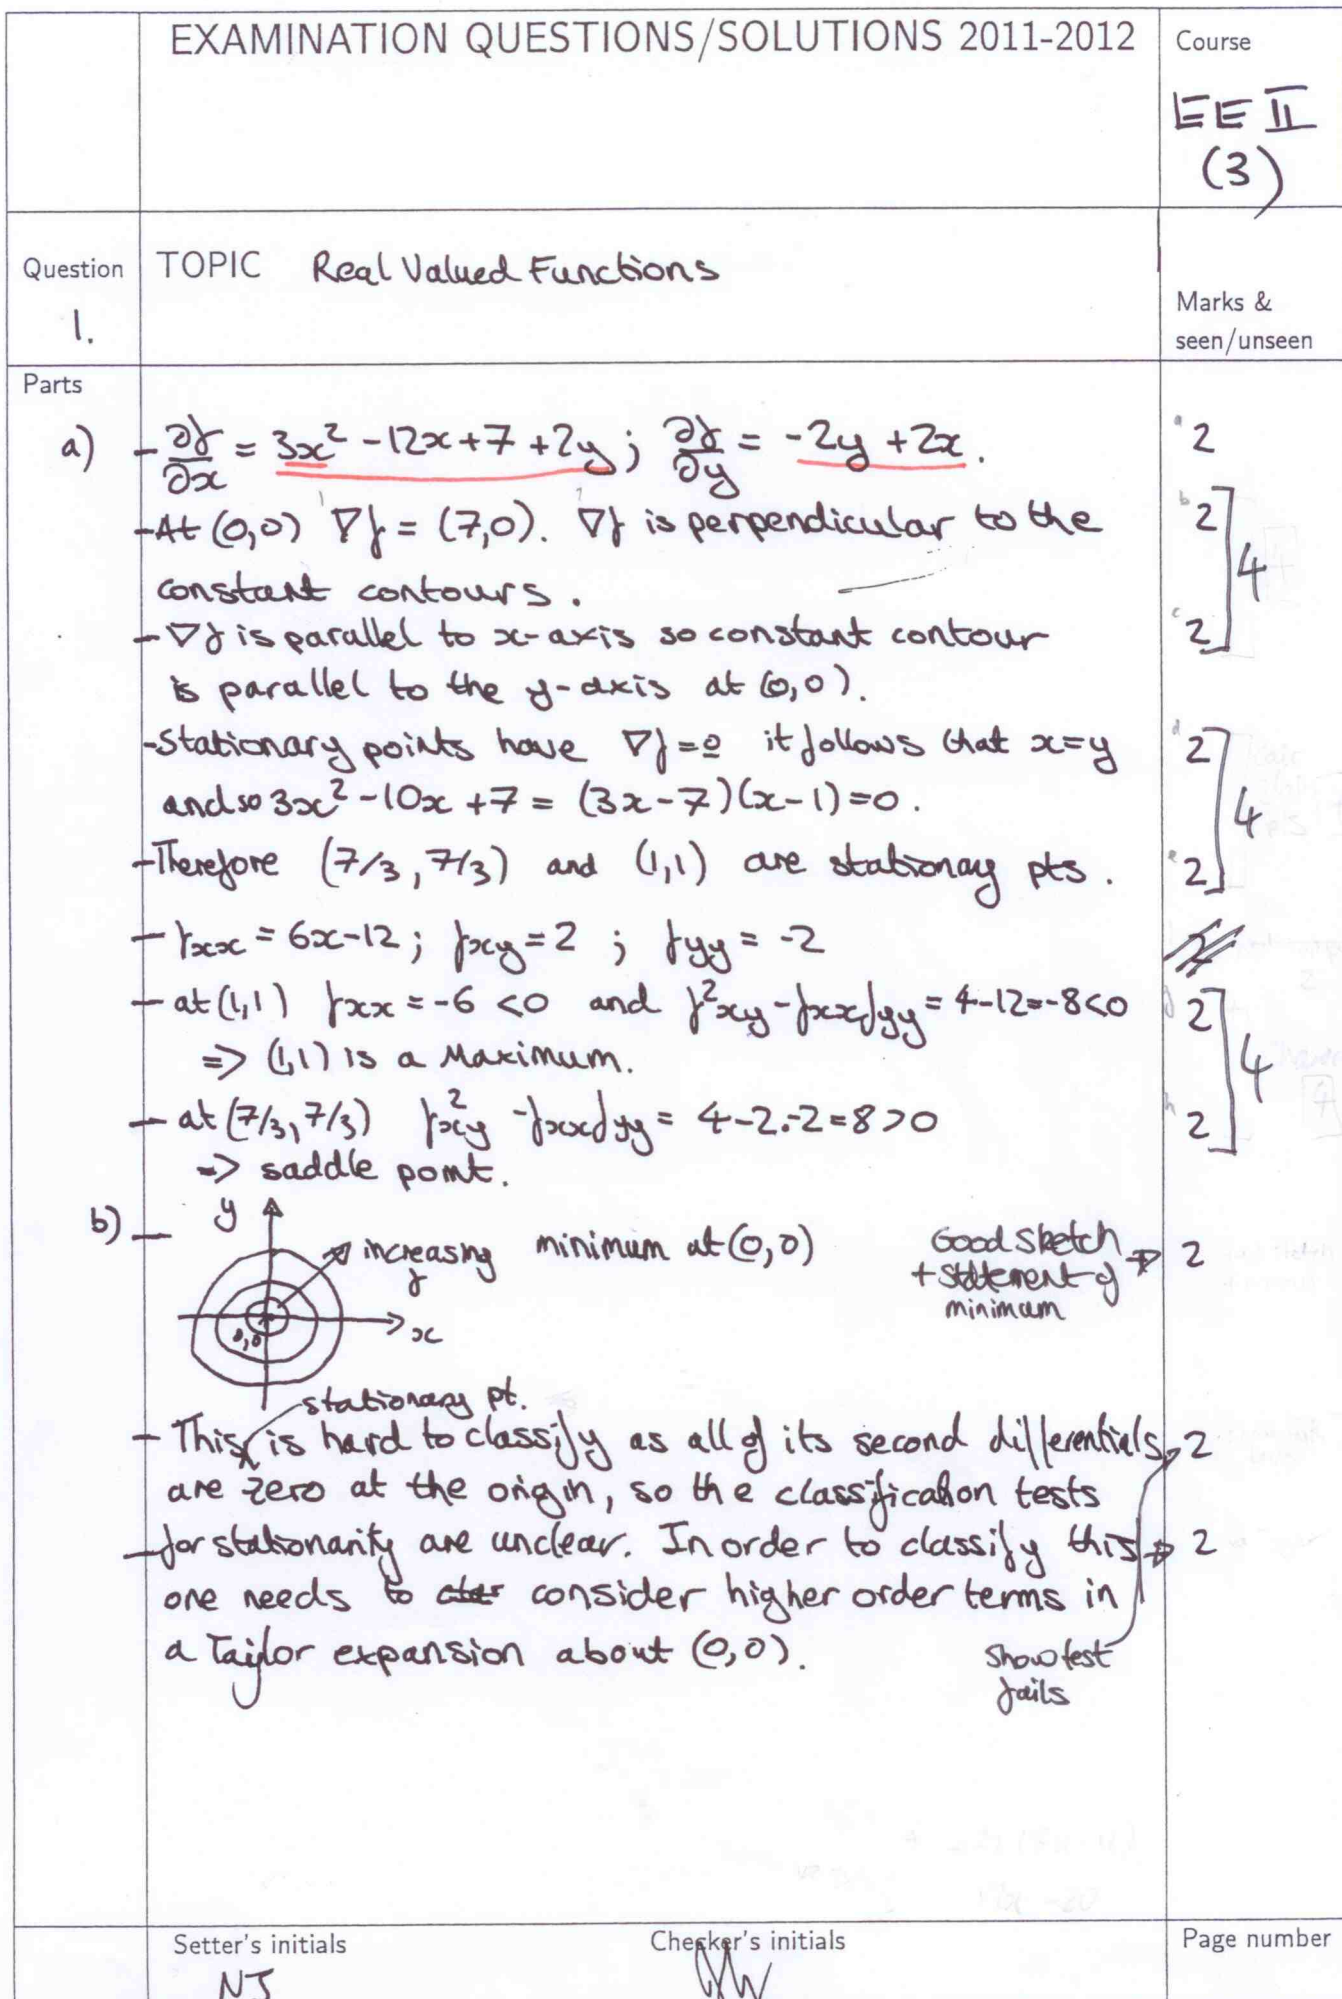 EXAMINATION QUESTIONS/SOLUTIONS 2011-2012
Course
EE II
(3)
Question
1.
TOPIC Real Valued Functions
Marks &
seen/unseen
Parts
a) - ∂f/∂x = 3x² -12x+7+2y; ∂f/∂y = -2y+2x. 2
- At (0,0) ∇f = (7,0). ∇f is perpendicular to the 2
constant contours. 4
- ∇f is parallel to x-axis so constant contour 2
is parallel to the y-axis at (0,0).
- Stationary points have ∇f=0 it follows that x=y 2
and so 3x²-10x+7 = (3x-7)(x-1)=0. 4
- Therefore (7/3, 7/3) and (1,1) are stationary pts. 2
- fxx = 6x-12; fxy = 2; fyy = -2 2
- at (1,1) fxx = -6 <0 and f²xy - fxxfyy = 4-12=-8<0 2
=> (1,1) is a Maximum. 4
- at (7/3, 7/3) f²xy - fxxfyy = 4-2.-2=8>0 2
=> saddle point.
b) -
y
increasing
f
minimum at (0,0)
Good sketch
+ statement of
minimum
2
0,0
x
stationary pt.
- This is hard to classify as all of its second differentials 2
are zero at the origin, so the classification tests
- for stationarity are unclear. In order to classify this 2
one needs to consider higher order terms in
a Taylor expansion about (0,0).
Show test
fails
Setter's initials
NJ
Checker's initials
Page number